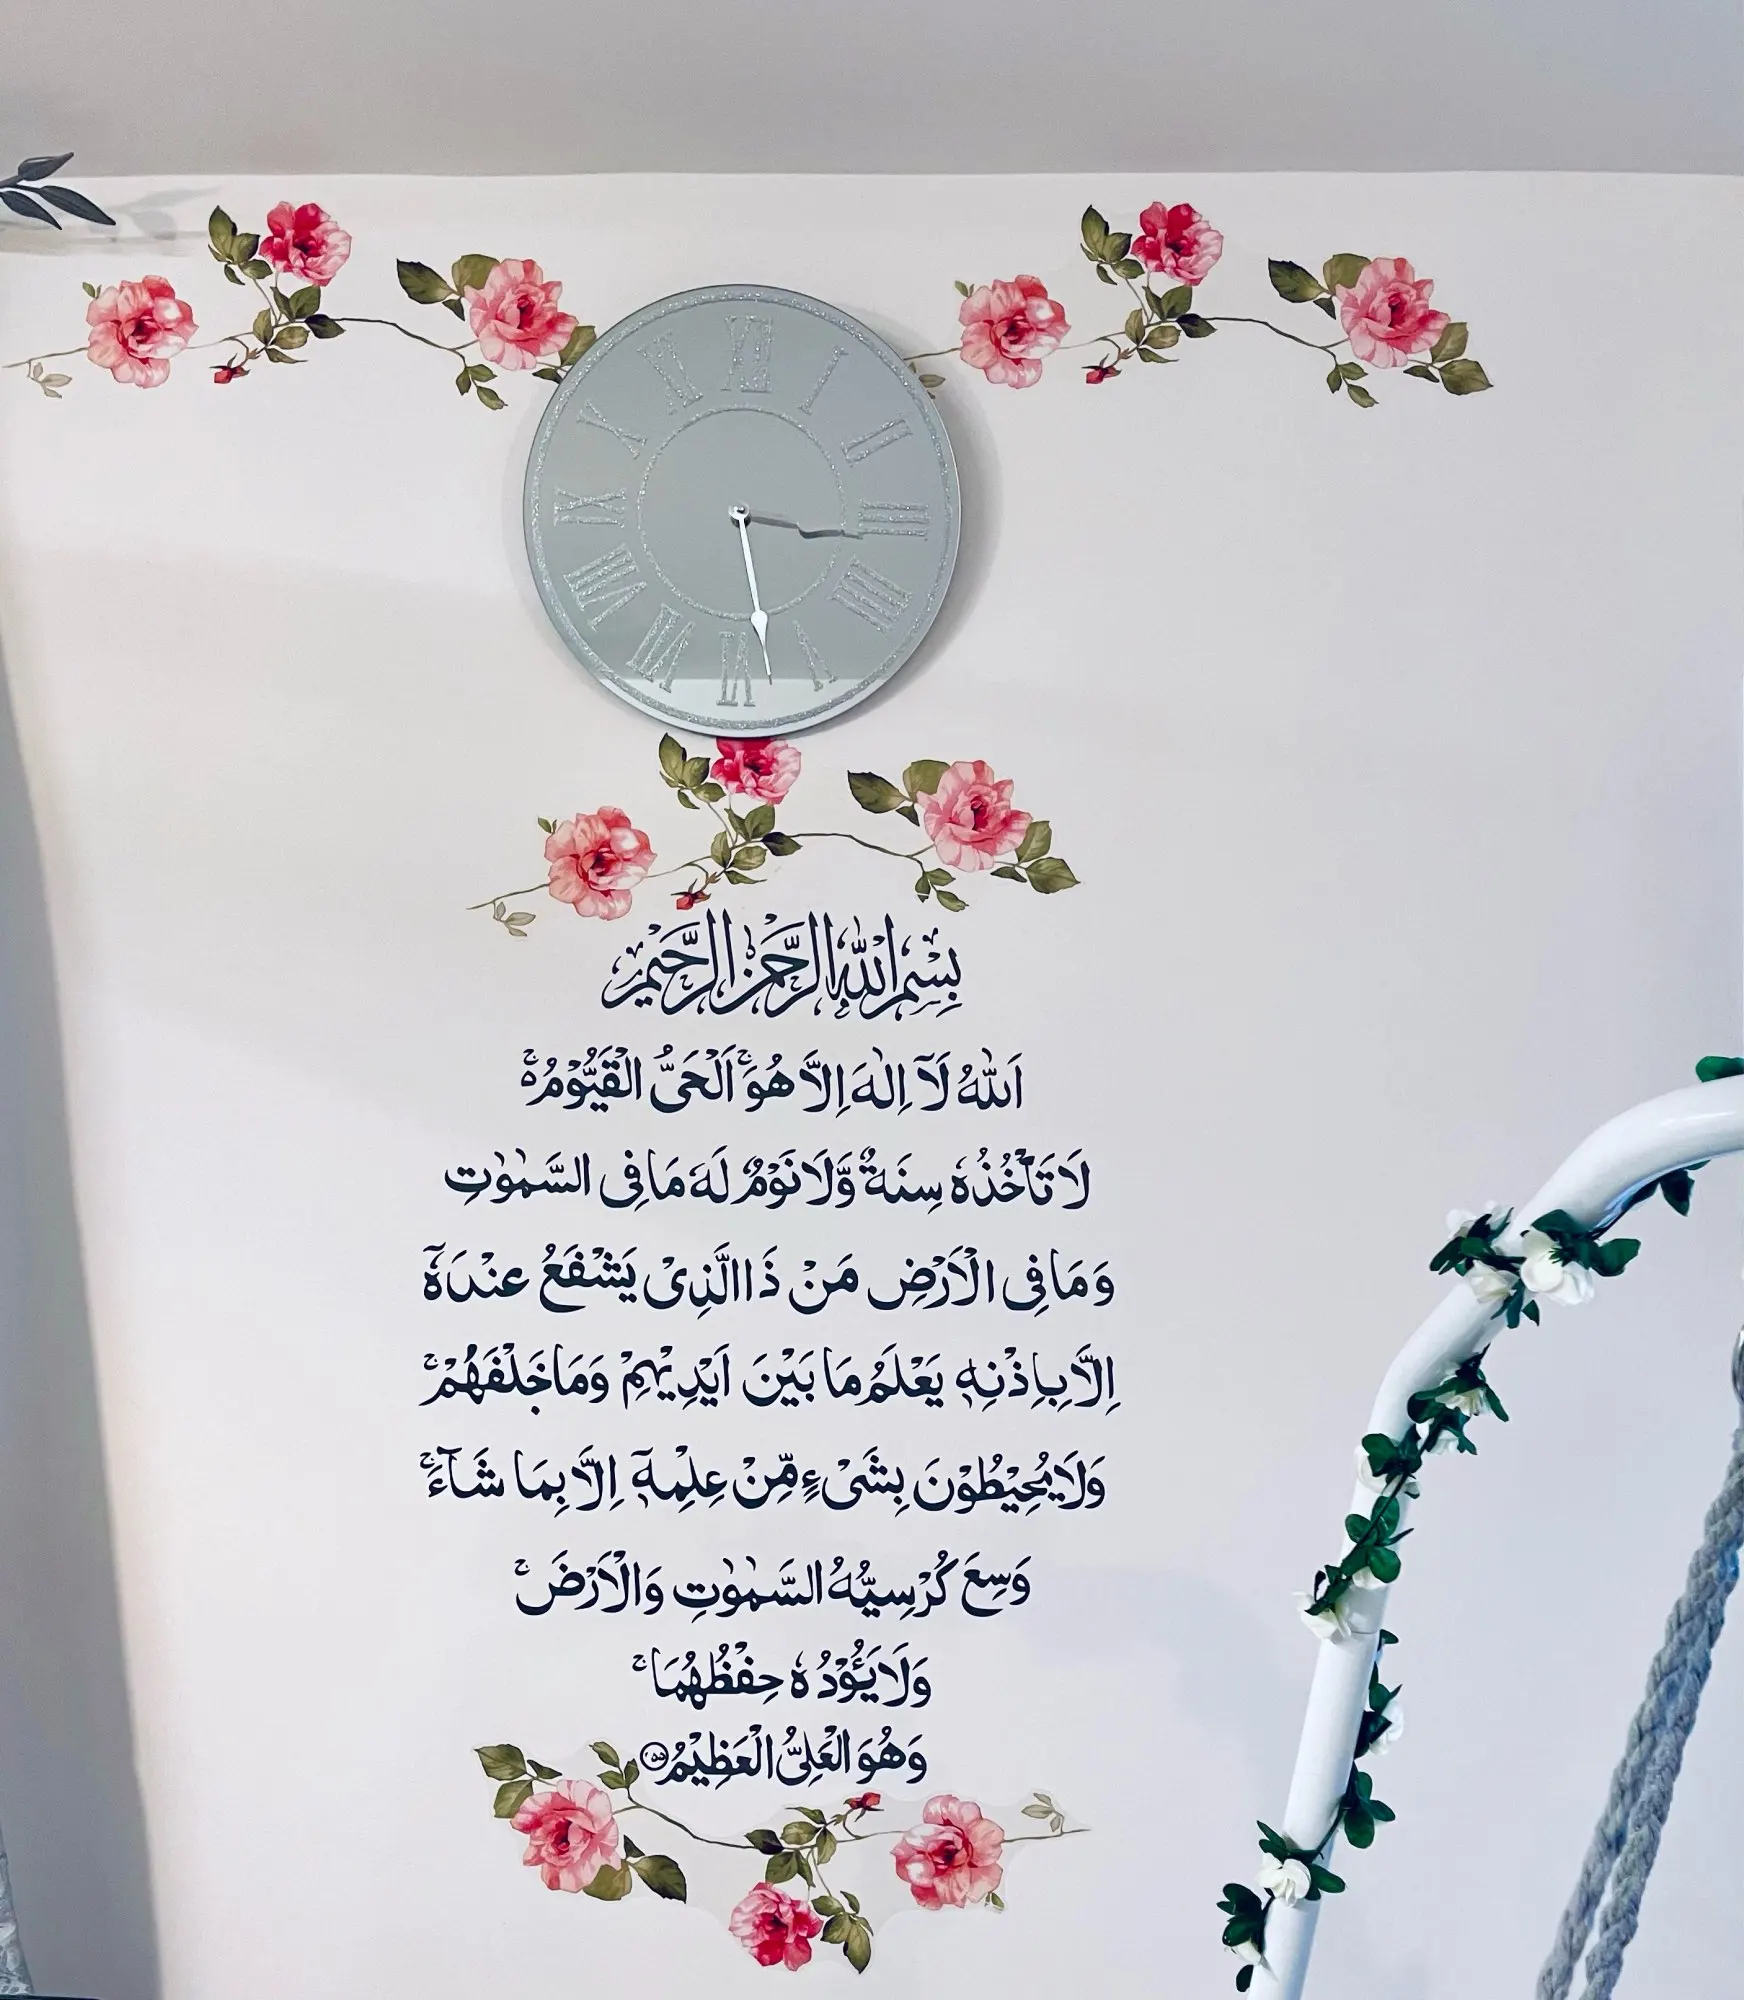 XII
I
II
III
IIII
V
VI
VII
VIII
IX
X
XI
بِسْمِ اللّٰهِ الرَّحْمٰنِ الرَّحِيْمِ
اَللّٰهُ لَآ اِلٰهَ اِلَّا هُوَ ۚ اَلْحَيُّ الْقَيُّوْمُ ەۚ
لَا تَاْخُذُهٗ سِنَةٌ وَّلَا نَوْمٌ لَهٗ مَا فِى السَّمٰوٰتِ
وَمَا فِى الْاَرْضِ مَنْ ذَا الَّذِىْ يَشْفَعُ عِنْدَهٗٓ
اِلَّا بِاِذْنِهٖ يَعْلَمُ مَا بَيْنَ اَيْدِيْهِمْ وَمَا خَلْفَهُمْ ۚ
وَلَا يُحِيْطُوْنَ بِشَىْءٍ مِّنْ عِلْمِهٖٓ اِلَّا بِمَا شَآءَ ۚ
وَسِعَ كُرْسِيُّهُ السَّمٰوٰتِ وَالْاَرْضَ ۚ
وَلَا يَـُٔوْدُهٗ حِفْظُهُمَا ۚ
وَهُوَ الْعَلِىُّ الْعَظِيْمُ ۝۲۵۵